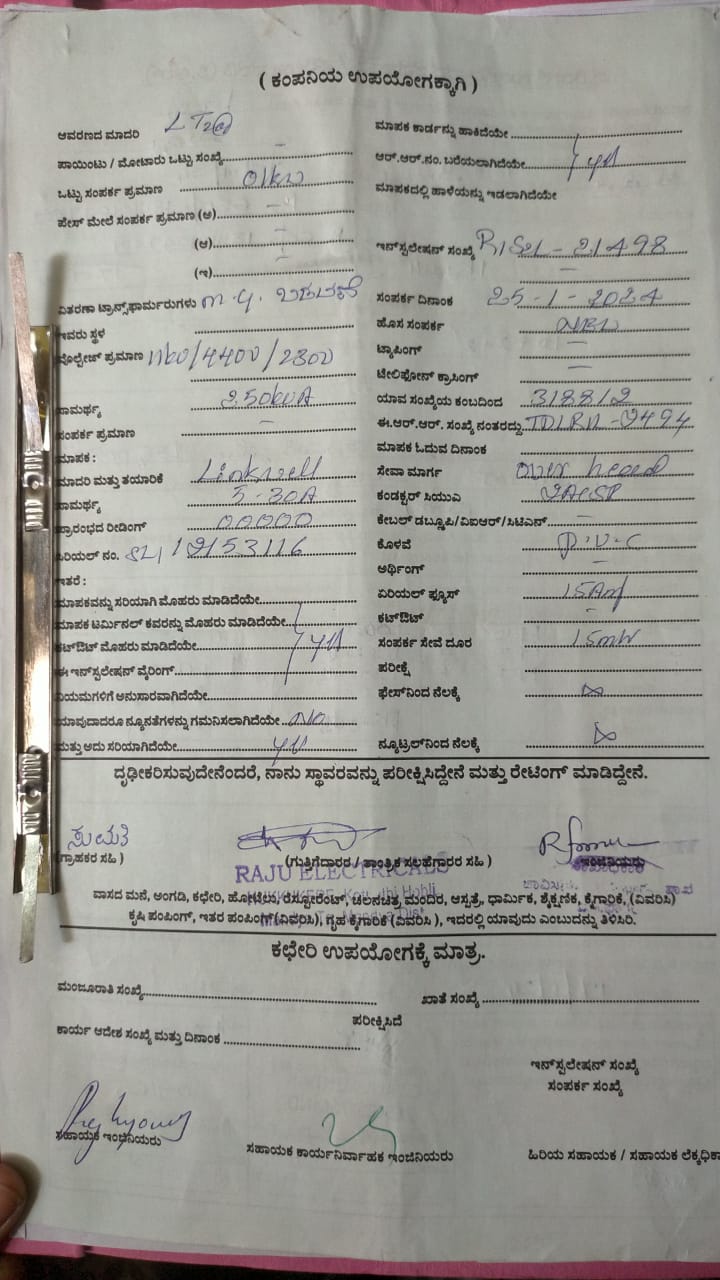 ( ಕಂಪನಿಯ ಉಪಯೋಗಕ್ಕಾಗಿ )
ಆವರಣದ ಮಾದರಿ LT2
ಪಾಯಿಂಟು / ಮೋಟಾರು ಒಟ್ಟು ಸಂಖ್ಯೆ
ಒಟ್ಟು ಸಂಪರ್ಕ ಪ್ರಮಾಣ 01kw
ಪೇಸ್ ಮೇಲೆ ಸಂಪರ್ಕ ಪ್ರಮಾಣ (ಅ)
(ಆ)
(ಇ)
ವಿತರಣಾ ಟ್ರಾನ್ಸ್‌ಫಾರ್ಮರುಗಳು
ಇವರು ಸ್ಥಳ
ವೋಲ್ಟೇಜ್ ಪ್ರಮಾಣ 11kv/440v/230v
ಸಾಮರ್ಥ್ಯ 250kVA
ಸಂಪರ್ಕ ಪ್ರಮಾಣ -
ಮಾಪಕ :
ಮಾದರಿ ಮತ್ತು ತಯಾರಿಕೆ Linkwell
ಸಾಮರ್ಥ್ಯ 5-30A
ಪ್ರಾರಂಭದ ರೀಡಿಂಗ್ 00000
ಸಿರಿಯಲ್ ನಂ.
ಇತರೆ :
ಮಾಪಕವನ್ನು ಸರಿಯಾಗಿ ಮೊಹರು ಮಾಡಿದೆಯೇ
ಮಾಪಕ ಟರ್ಮಿನಲ್ ಕವರನ್ನು ಮೊಹರು ಮಾಡಿದೆಯೇ
ಕಟ್‌ಔಟ್ ಮೊಹರು ಮಾಡಿದೆಯೇ
ಈ ಇನ್‌ಸ್ಟಲೇಷನ್ ವೈರಿಂಗ್
ನಿಯಮಗಳಿಗೆ ಅನುಸಾರವಾಗಿದೆಯೇ
ಯಾವುದಾದರೂ ನ್ಯೂನತೆಗಳನ್ನು ಗಮನಿಸಲಾಗಿದೆಯೇ No
ಮತ್ತು ಅದು ಸರಿಯಾಗಿದೆಯೇ
ಮಾಪಕ ಕಾರ್ಡನ್ನು ಹಾಕಿದೆಯೇ
ಆರ್.ಆರ್.ನಂ. ಬರೆಯಲಾಗಿದೆಯೇ
ಮಾಪಕದಲ್ಲಿ ಹಾಳೆಯನ್ನು ಇಡಲಾಗಿದೆಯೇ
ಇನ್‌ಸ್ಟಲೇಷನ್ ಸಂಖ್ಯೆ
ಸಂಪರ್ಕ ದಿನಾಂಕ 25-1-2024
ಹೊಸ ಸಂಪರ್ಕ
ಟ್ಯಾಪಿಂಗ್ -
ಟೇಲಿಫೋನ್ ಕ್ರಾಸಿಂಗ್ -
ಯಾವ ಸಂಖ್ಯೆಯ ಕಂಬದಿಂದ 3188/2
ಈ.ಆರ್.ಆರ್. ಸಂಖ್ಯೆ ನಂತರದ್ದು
ಮಾಪಕ ಓದುವ ದಿನಾಂಕ
ಸೇವಾ ಮಾರ್ಗ over head
ಕಂಡಕ್ಟರ್ ಸಿಯುಎ
ಕೇಬಲ್ ಡಬ್ಲ್ಯೂಪಿ/ವಿಐಆರ್/ಸಿಟಿಎನ್ -
ಕೊಳವೆ P.V.C
ಅರ್ಥಿಂಗ್
ಏರಿಯಲ್ ಫ್ಯೂಸ್
ಕಟ್‌ಔಟ್ -
ಸಂಪರ್ಕ ಸೇವೆ ದೂರ
ಪರೀಕ್ಷೆ
ಫೇಸ್‌ನಿಂದ ನೆಲಕ್ಕೆ
ನ್ಯೂಟ್ರಲ್‌ನಿಂದ ನೆಲಕ್ಕೆ
ದೃಢೀಕರಿಸುವುದೇನೆಂದರೆ, ನಾನು ಸ್ಥಾವರವನ್ನು ಪರೀಕ್ಷಿಸಿದ್ದೇನೆ ಮತ್ತು ರೇಟಿಂಗ್ ಮಾಡಿದ್ದೇನೆ.
ಸುಮತಿ
(ಗ್ರಾಹಕರ ಸಹಿ )
(ಗುತ್ತಿಗೆದಾರರ / ತಾಂತ್ರಿಕ ಸಲಹೆಗಾರರ ಸಹಿ )
ಇಂಜಿನಿಯರು
RAJU ELECTRICALS
ವಾಸದ ಮನೆ, ಅಂಗಡಿ, ಕಛೇರಿ, ಹೋಟೆಲು, ರೆಸ್ಟೋರೆಂಟ್, ಚಲನಚಿತ್ರ ಮಂದಿರ, ಆಸ್ಪತ್ರೆ, ಧಾರ್ಮಿಕ, ಶೈಕ್ಷಣಿಕ, ಕೈಗಾರಿಕೆ, (ವಿವರಿಸಿ)
ಕೃಷಿ ಪಂಪಿಂಗ್, ಇತರ ಪಂಪಿಂಗ್ (ವಿವರಿಸಿ), ಗೃಹ ಕೈಗಾರಿಕೆ (ವಿವರಿಸಿ ), ಇದರಲ್ಲಿ ಯಾವುದು ಎಂಬುದನ್ನು ತಿಳಿಸಿರಿ.
ಕಛೇರಿ ಉಪಯೋಗಕ್ಕೆ ಮಾತ್ರ.
ಮಂಜೂರಾತಿ ಸಂಖ್ಯೆ
ಖಾತೆ ಸಂಖ್ಯೆ
ಪರೀಕ್ಷಿಸಿದೆ
ಕಾರ್ಯ ಆದೇಶ ಸಂಖ್ಯೆ ಮತ್ತು ದಿನಾಂಕ
ಇನ್‌ಸ್ಟಲೇಷನ್ ಸಂಖ್ಯೆ
ಸಂಪರ್ಕ ಸಂಖ್ಯೆ
ಸಹಾಯಕ ಇಂಜಿನಿಯರು
ಸಹಾಯಕ ಕಾರ್ಯನಿರ್ವಾಹಕ ಇಂಜಿನಿಯರು
ಹಿರಿಯ ಸಹಾಯಕ / ಸಹಾಯಕ ಲೆಕ್ಕಧಿಕಾ